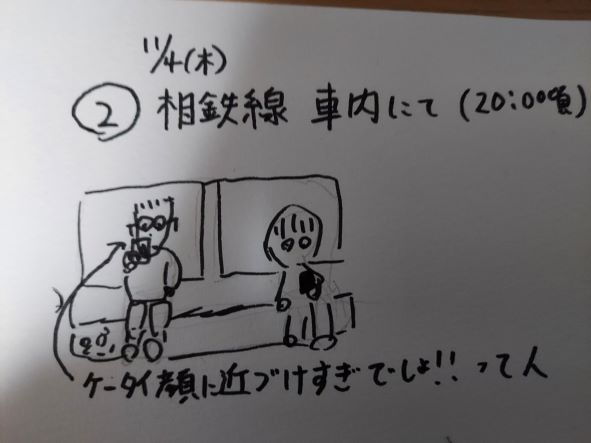 11/4(木)
② 相鉄線 車内にて (20:00頃)
ケータイ顔に近づけすぎでしょ!! って人